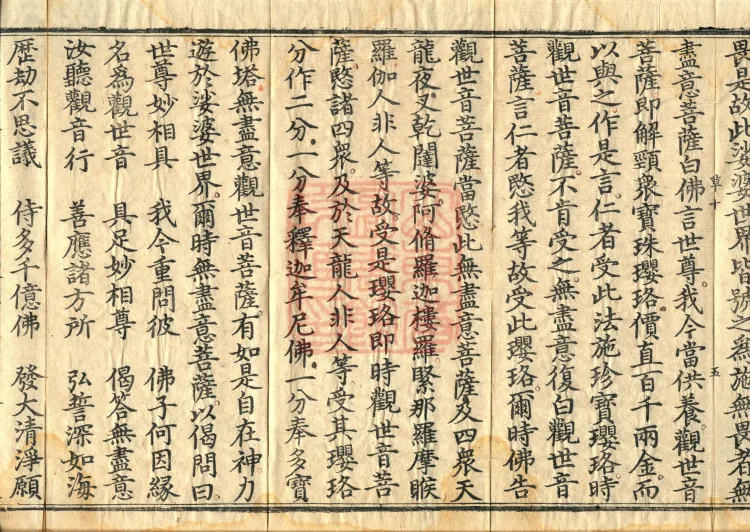 畏是故此娑婆世界皆號之為施無畏者無
盡意菩薩白佛言世尊我今當供養觀世音
菩薩即解頸衆寶珠瓔珞價直百千兩金而
以與之作是言仁者受此法施珍寶瓔珞時
觀世音菩薩不肯受之無盡意復白觀世音
菩薩言仁者愍我等故受此瓔珞爾時佛告
觀世音菩薩當愍此無盡意菩薩及四衆天
龍夜叉乾闥婆阿脩羅迦樓羅緊那羅摩睺
羅伽人非人等故受是瓔珞即時觀世音菩
薩愍諸四衆及於天龍人非人等受其瓔珞
分作二分一分奉釋迦牟尼佛一分奉多寶
佛塔無盡意觀世音菩薩有如是自在神力
遊於娑婆世界爾時無盡意菩薩以偈問曰
世尊妙相具 我今重問彼 佛子何因緣
名為觀世音 具足妙相尊 偈答無盡意
汝聽觀音行 善應諸方所 弘誓深如海
歷劫不思議 侍多千億佛 發大清淨願
草十
五